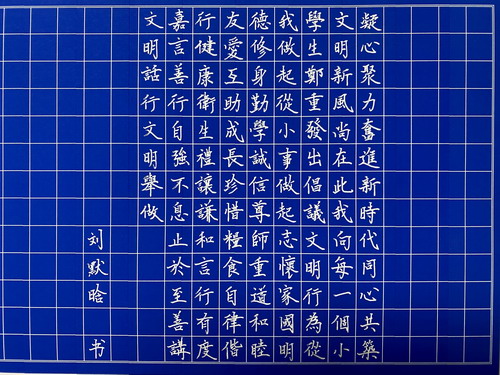 凝心聚力奮進新時代同心共築
文明新風尚在此我向每一個小
學生鄭重發出倡議文明行為從
我做起從小事做起志懷家國明
德修身勤學誠信尊師重道和睦
友愛互助成長珍惜糧食自律偕
行健康衛生禮讓謙和言行有度
嘉言善行自強不息止於至善講
文明話行文明舉做
刘默晗 书